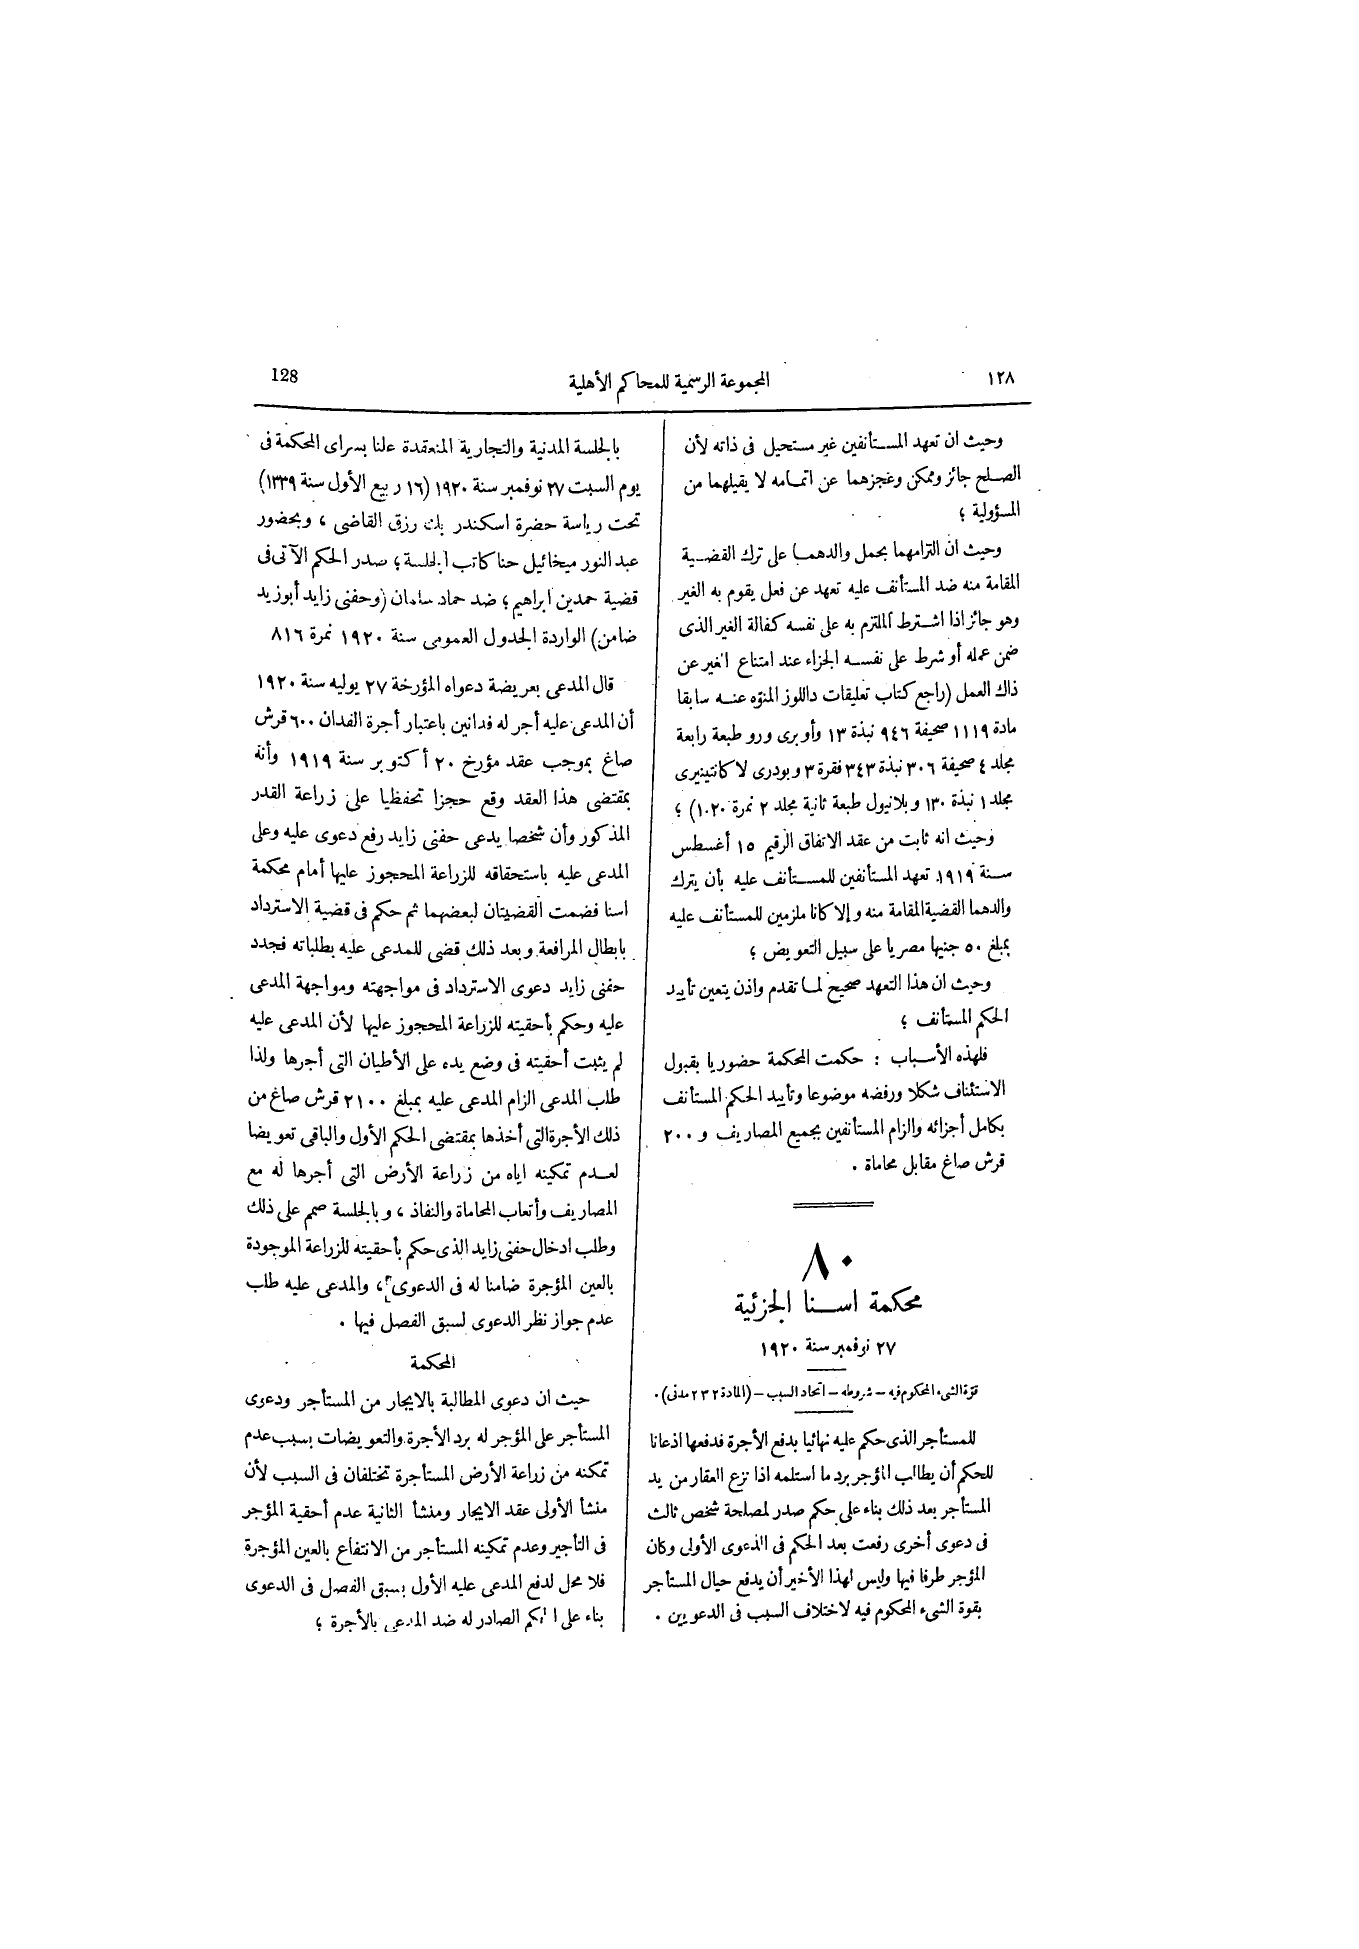 ١٢٨
المجموعة الرسمية للمحاكم الأهلية
128
وحيث ان تعهد المستأنفين غير مستحيل فى ذاته لأن
الصلح جائز وممكن وعجزهما عن اتمامه لا يقيلهما من
المسؤولية ؛
وحيث ان التزامهما بحمل والدهما على ترك القضية
المقامة منه ضد المستأنف عليه تعهد عن فعل يقوم به الغير
وهو جائز اذا اشترط الملتزم به على نفسه كفالة الغير الذى
ضمن عمله أو شرط على نفسه الجزاء عند امتناع الغير عن
ذاك العمل (راجع كتاب تعليقات داللوز المنوّه عنه سابقا
مادة ١١١٩ صحيفة ٩٤٦ نبذة ١٣ وأوبرى ورو طبعة رابعة
مجلد ٤ صحيفة ٣٠٦ نبذة ٣٤٣ فقرة ٣ و بودرى لاكانتينيرى
مجلد ١ نبذة ١٣٠ و بلانيول طبعة ثانية مجلد ٢ نمرة ١٠٢٠) ؛
وحيث انه ثابت من عقد الاتفاق الرقيم ١٥ أغسطس
سنة ١٩١٩ تعهد المستأنفين للمستأنف عليه بأن يترك
والدهما القضية المقامة منه و إلا كانا ملزمين للمستأنف عليه
بمبلغ ٥٠ جنيها مصريا على سبيل التعويض ؛
وحيث ان هذا التعهد صحيح لما تقدم واذن يتعين تأييد
الحكم المستأنف ؛
فلهذه الأسباب : حكمت المحكمة حضوريا بقبول
الاستئناف شكلا ورفضه موضوعا وتأييد الحكم المستأنف
بكامل أجزائه والزام المستأنفين بجميع المصاريف و ٢٠٠
قرش صاغ مقابل محاماة .
٨٠
محكمة اسنا الجزئية
٢٧ نوفمبر سنة ١٩٢٠
قوّة الشىء المحكوم فيه – شروطه – اتحاد السبب – (المادة ٢٣٢ مدنى) .
للمستأجر الذى حكم عليه نهائيا بدفع الأجرة فدفعها اذعانا
للحكم أن يطالب المؤجر برد ما استلمه اذا نزع العقار من يد
المستأجر بعد ذلك بناء على حكم صدر لمصلحة شخص ثالث
فى دعوى أخرى رفعت بعد الحكم فى الدعوى الأولى وكان
المؤجر طرفا فيها وليس لهذا الأخير أن يدفع حيال المستأجر
بقوة الشىء المحكوم فيه لاختلاف السبب فى الدعويين .
بالجلسة المدنية والتجارية المنعقدة علنا بسراى المحكمة فى
يوم السبت ٢٧ نوفمبر سنة ١٩٢٠ (١٦ ربيع الأول سنة ١٣٣٩)
تحت رياسة حضرة اسكندر بك رزق القاضى ، وبحضور
عبد النور ميخائيل حنا كاتب الجلسة ؛ صدر الحكم الآتى فى
قضية حمدين ابراهيم ؛ ضد حماد سلمان (وحفنى زايد أبوزيد
ضامن) الواردة الجدول العمومى سنة ١٩٢٠ نمرة ٨١٦
قال المدعى بعريضة دعواه المؤرخة ٢٧ يوليه سنة ١٩٢٠
أن المدعى عليه أجر له فدانين باعتبار أجرة الفدان ٦٠٠ قرش
صاغ بموجب عقد مؤرخ ٢٠ أكتوبر سنة ١٩١٩ وأنه
بمقتضى هذا العقد وقع حجزا تحفظيا على زراعة القدر
المذكور وأن شخصا يدعى حفنى زايد رفع دعوى عليه وعلى
المدعى عليه باستحقاقه للزراعة المحجوز عليها أمام محكمة
اسنا فضمت القضيتان لبعضهما ثم حكم فى قضية الاسترداد
بابطال المرافعة وبعد ذلك قضى للمدعى عليه بطلباته فجدد
حفنى زايد دعوى الاسترداد فى مواجهته ومواجهة المدعى
عليه وحكم بأحقيته للزراعة المحجوز عليها لأن المدعى عليه
لم يثبت أحقيته فى وضع يده على الأطيان التى أجرها ولذا
طلب المدعى الزام المدعى عليه بمبلغ ٢١٠٠ قرش صاغ من
ذلك الأجرة التى أخذها بمقتضى الحكم الأول والباقى تعويضا
لعدم تمكينه اياه من زراعة الأرض التى أجرها له مع
المصاريف وأتعاب المحاماة والنفاذ ، وبالجلسة صمم على ذلك
وطلب ادخال حفنى زايد الذى حكم بأحقيته للزراعة الموجودة
بالعين المؤجرة ضامنا له فى الدعوى ، والمدعى عليه طلب
عدم جواز نظر الدعوى لسبق الفصل فيها .
المحكمة
حيث ان دعوى المطالبة بالايجار من المستأجر ودعوى
المستأجر على المؤجر له برد الأجرة والتعويضات بسبب عدم
تمكنه من زراعة الأرض المستأجرة تختلفان فى السبب لأن
منشأ الأولى عقد الايجار ومنشأ الثانية عدم أحقية المؤجر
فى التأجير وعدم تمكينه المستأجر من الانتفاع بالعين المؤجرة
فلا محل لدفع المدعى عليه الأول بسبق الفصل فى الدعوى
بناء على الحكم الصادر له ضد المدعى بالأجرة ؛